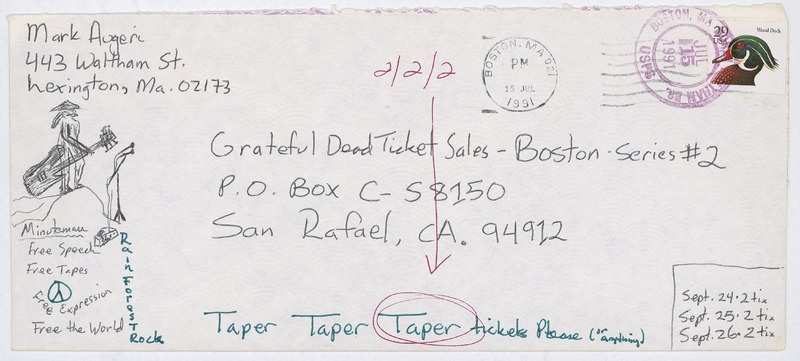 Mark Augeri
443 Waltham St.
Lexington, Ma. 02173
2/2/2
BOSTON, MA 021
PM
15 JUL
1991
BOSTON, MA
JUL
15
1991
USPS
29
USA
Wood Duck
Grateful Dead Ticket Sales - Boston - Series #2
P.O. Box C-S8150
San Rafael, CA. 94912
Minuteman
Free Speech
Free Tapes
Free Expression
Free the World
Rain Forest
Rock
Taper Taper Taper tickets Please (or anything)
Sept. 24 · 2 tix
Sept. 25 · 2 tix
Sept. 26 · 2 tix